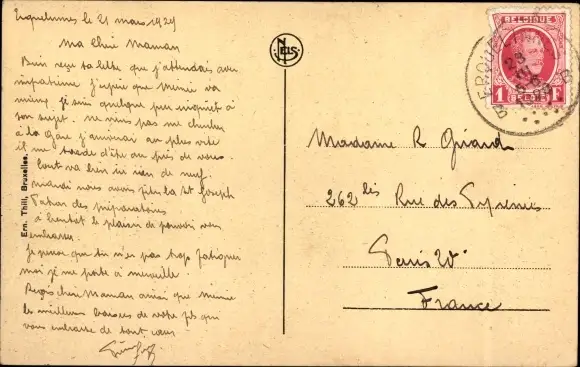 Erquelinnes le 21 mars 1929
Ma Chère Maman
Bien reçu ta lettre que j'attendais avec
impatience j'espère que Mémée va
mieux, je suis quelque peu inquiet à
son sujet. ne viens pas me chercher
à la Gare j'arriverai au plus vite
il me tarde d'être au près de vous.
tout va bien ici rien de neuf.
mardi nous avons fêté la St Joseph
des préparatoires
à bientôt le plaisir de pouvoir vous
embrasser.
Je pense que tu n'es pas trop fatiguée
moi je me porte à merveille
Reçois chère Maman ainsi que Mémée
les meilleurs baisers de votre fils qui
vous embrasse de tout cœur
Ern. Thill, Bruxelles.
NELS
BELGIQUE
1F 1F
BELGIË
Madame R Girard
262 bis Rue des Pyrénées
Paris
France